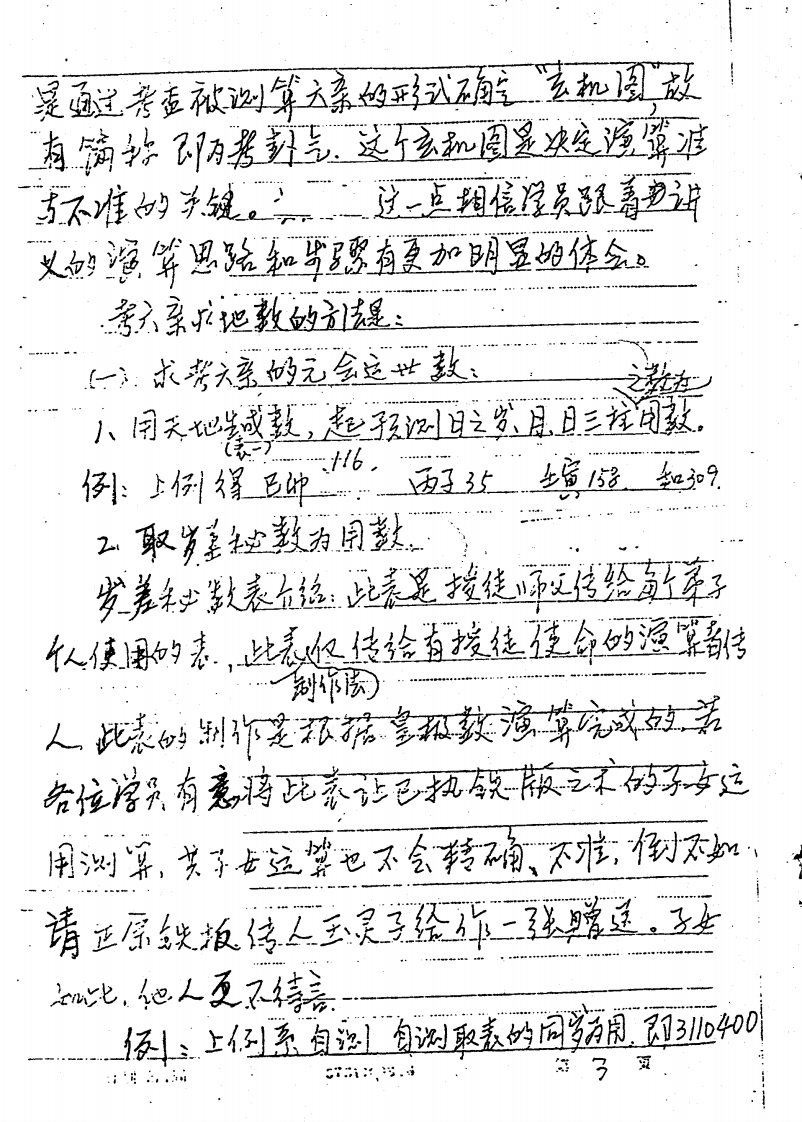 是通过考查被测算六亲的形式确定“玄机图”,故
有简称即为考卦气.这个玄机图是决定演算准
与不准的关键。 这一点相信学员跟着讲
义的演算思路和步骤有更加明显的体会。
考六亲求地数的方法是:
(一)、求考六亲的元会运世数:
之数为
1、用天地生成数,起预测日之岁、月、日三柱用数。
(表一)
例:上例得 己卯116. 丙子35 壬寅158. 和309.
2、取岁差秘数为用数.
岁差秘数表介绍:此表是授徒师父传给每个弟子
个人使用的表,此表仅传给有授徒使命的演算者传
制作法
人.此表的制作是根据皇极数演算完成的.若
各位学员有意将此表让已执铁版之术的子女运
用测算,其子女运算也不会精确、不准,倒不如
请正宗铁板传人玉灵子给作一张赠送。子女
如此,他人更不待言.
例:上例系自测 自测取表的同岁为用.即3110400
第 3 页